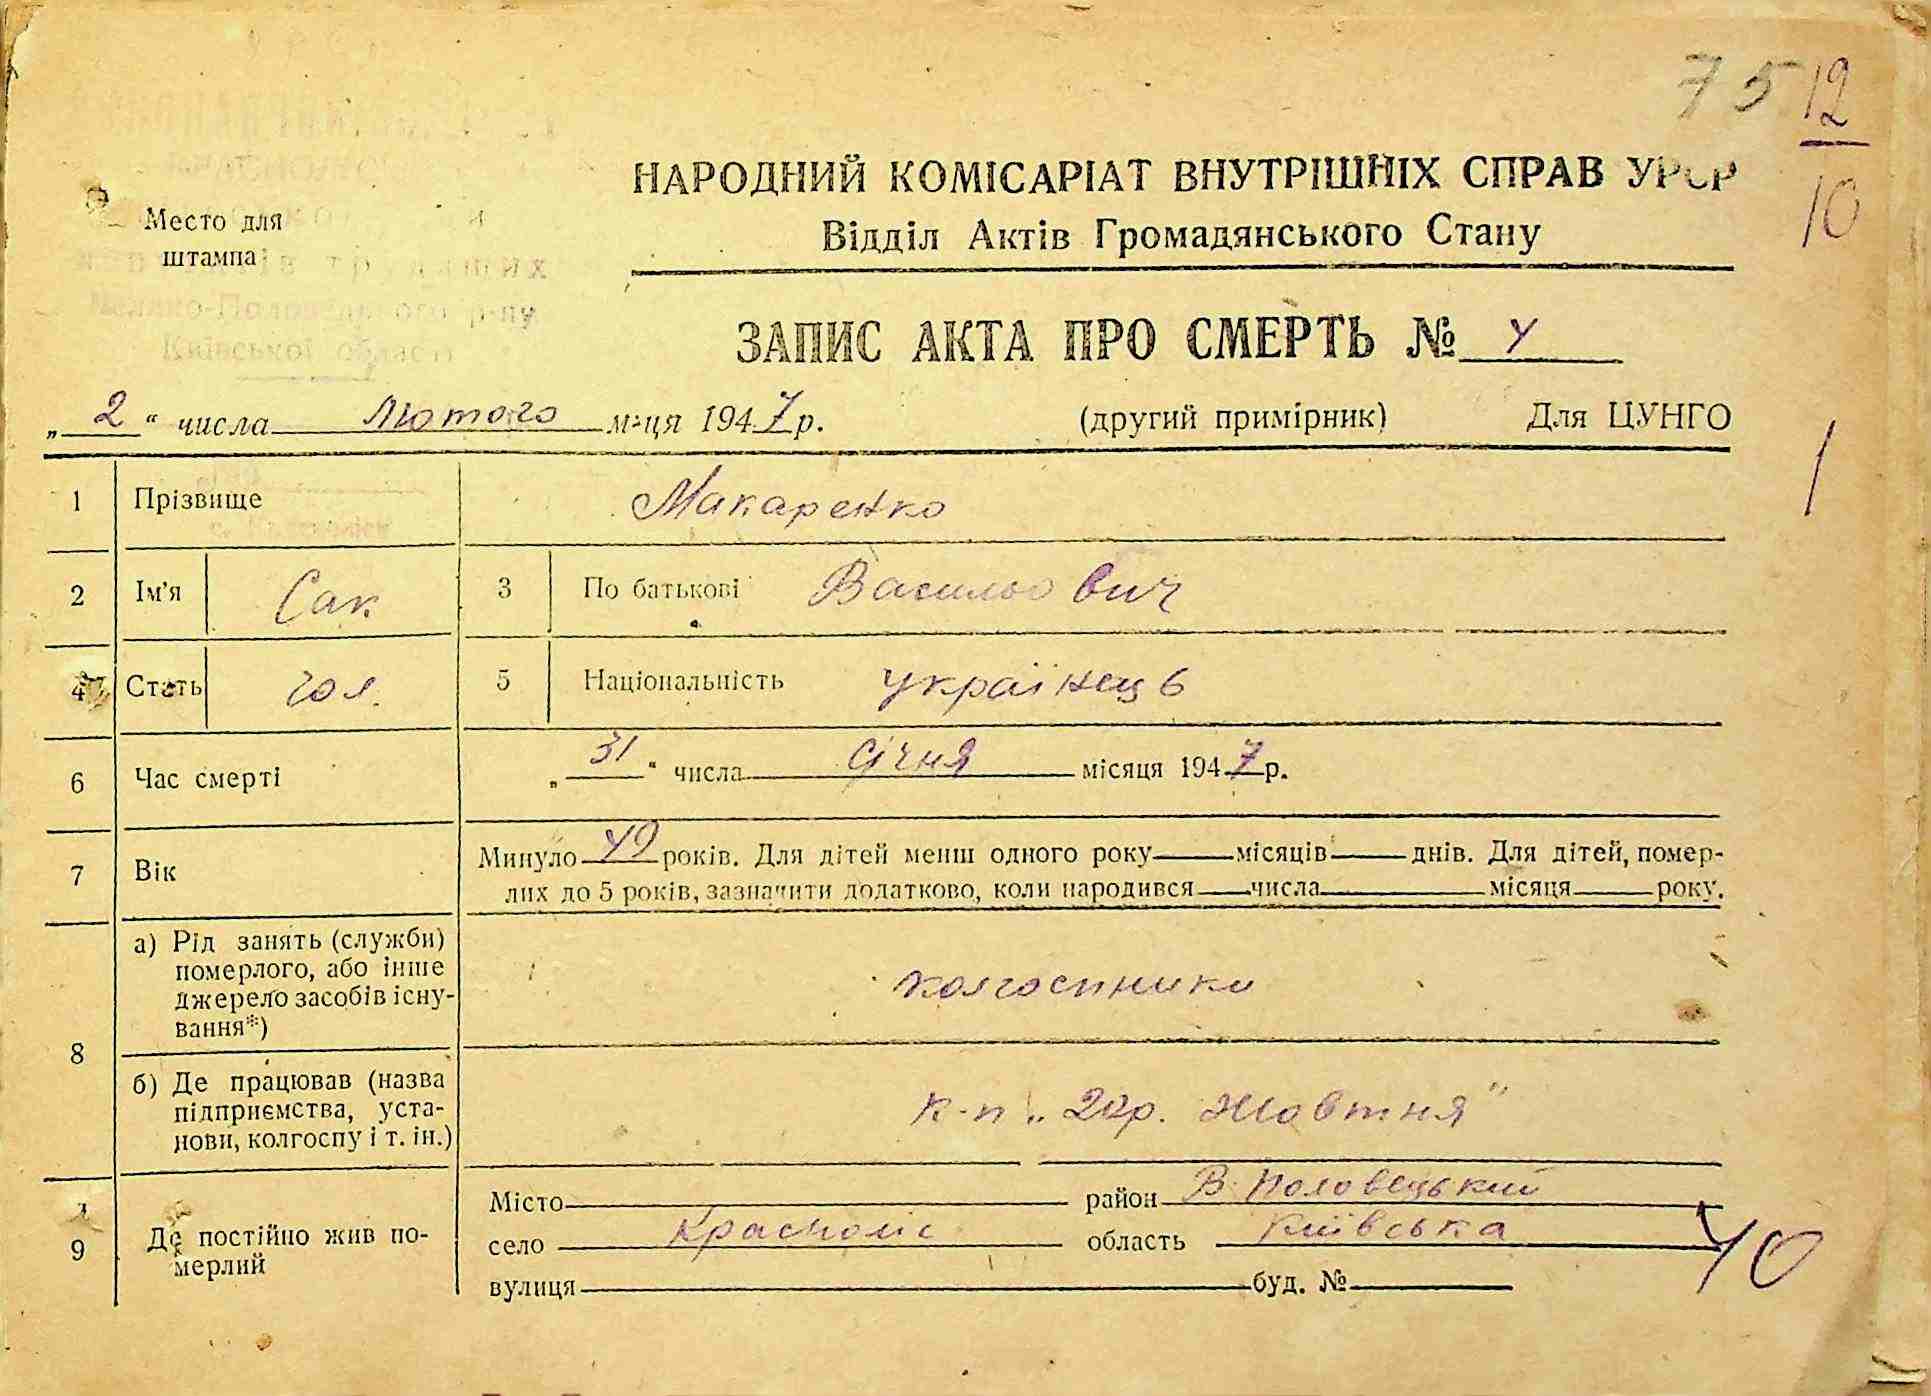 75 12
10
Место для
штампа
Київської області
НАРОДНИЙ КОМІСАРІАТ ВНУТРІШНІХ СПРАВ УРСР
Відділ Актів Громадянського Стану
ЗАПИС АКТА ПРО СМЕРТЬ № 4
„2“ числа Лютого м-ця 1947р. (другий примірник) Для ЦУНГО
1
1 Прізвище Макаренко
2 Ім'я Сак 3 По батькові Васильович
4 Стать чол. 5 Національність українець
6 Час смерті „31“ числа січня місяця 1947р.
7 Вік Минуло 49 років. Для дітей менш одного року місяців днів. Для дітей, помер-
лих до 5 років, зазначити додатково, коли народився числа місяця року.
8 а) Рід занять (служби)
померлого, або інше
джерело засобів існу-
вання*)
колгоспники
б) Де працював (назва
підприємства, уста-
нови, колгоспу і т. ін.)
к-п „20р. Жовтня"
9 Де постійно жив по-
мерлий
Місто район В. Половецький
село Красноліс область Київська
вулиця буд. №
40